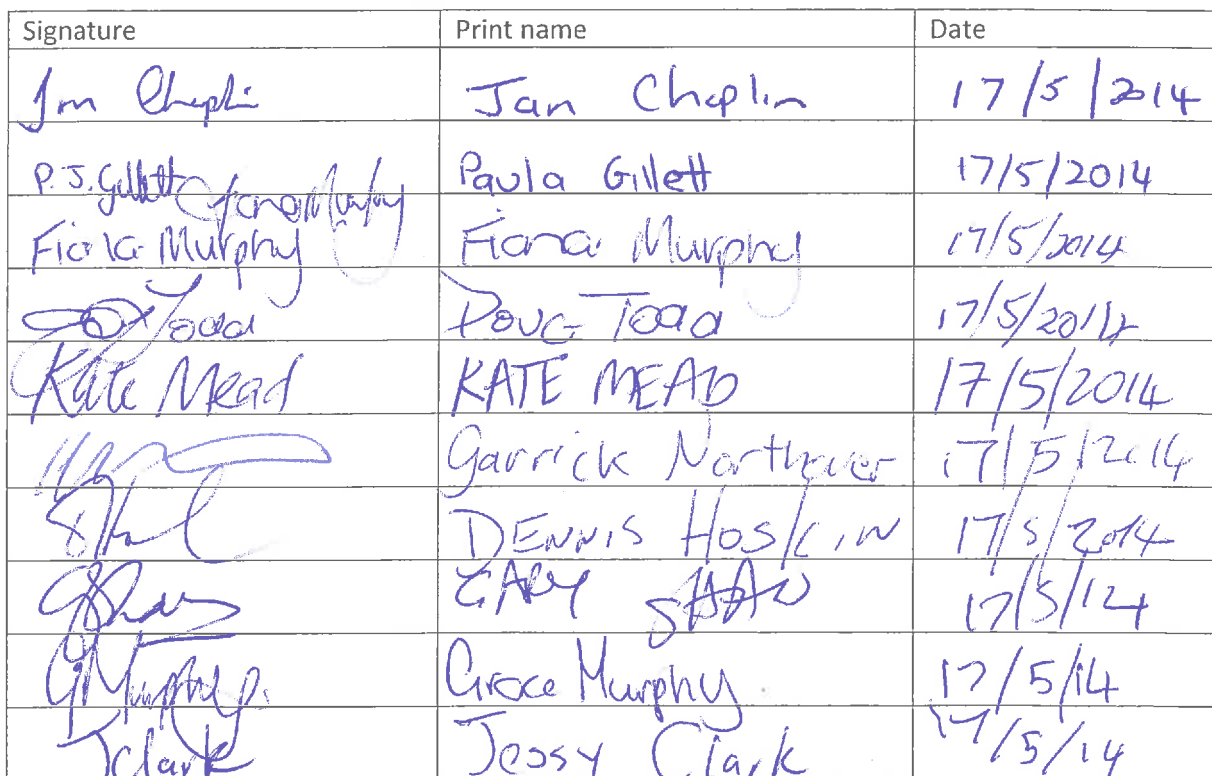 Signature Print name Date
Jan Chaplin Jan Chaplin 17/5/2014
P.J. Gillett Fiona Murphy Paula Gillett 17/5/2014
Fiona Murphy Fiona Murphy 17/5/2014
Todd Doug Todd 17/5/2014
Kate Mead KATE MEAD 17/5/2014
Garrick Northover 17/5/2014
DENNIS HOSKIN 17/5/2014
GARY 17/5/14
G Murphy Grace Murphy 17/5/14
J Clark Jessy Clark 17/5/14